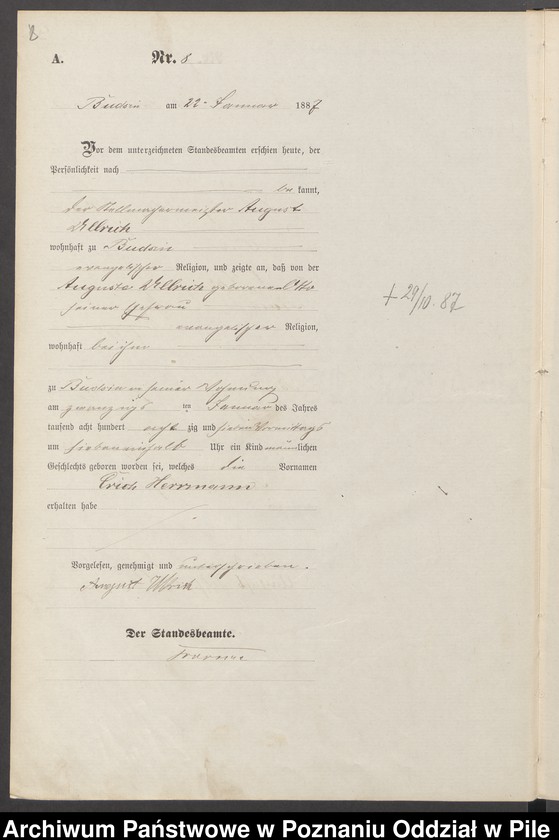 8
A.
Nr. 8
Budsin am 22. Januar 1887
Vor dem unterzeichneten Standesbeamten erschien heute, der
Persönlichkeit nach
be kannt,
der Stellmachermeister August
Ullrich
wohnhaft zu Budsin
evangelischer Religion, und zeigte an, daß von der
Auguste Ullrich geborenen
seiner Ehefrau
evangelischer Religion,
wohnhaft bei ihm
zu Budsin in seiner Wohnung
am zwanzigsten Januar des Jahres
tausend acht hundert acht zig und sieben Vormittags
um sieben einhalb Uhr ein Kind männlichen
Geschlechts geboren worden sei, welches die Vornamen
Erich Herrmann
erhalten habe
Vorgelesen, genehmigt und unterschrieben.
August Ullrich
Der Standesbeamte.
+ 29/10. 87
Archiwum Państwowe w Poznaniu Oddział w Pile